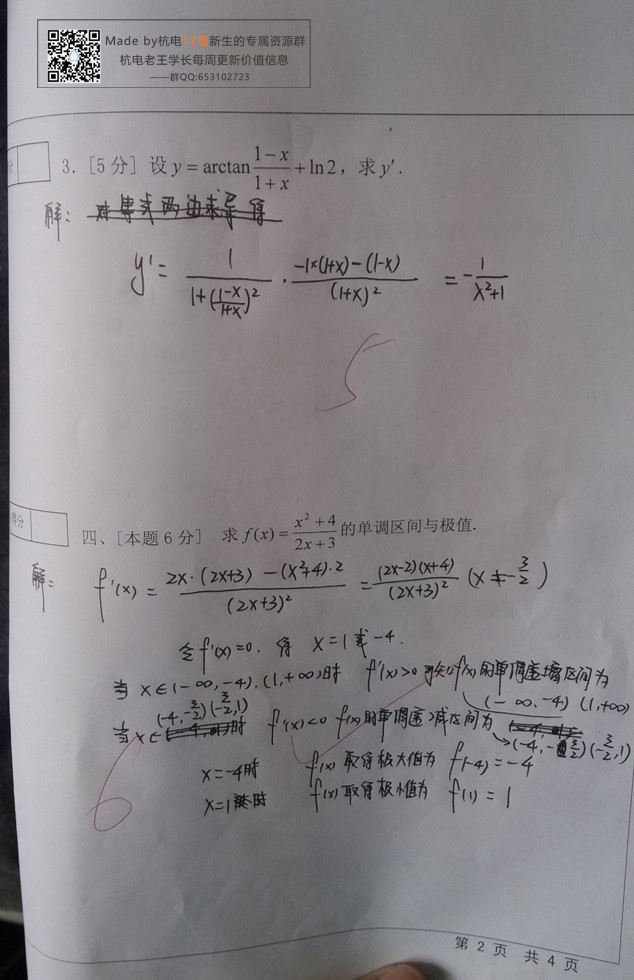 Made by杭电17级新生的专属资源群
杭电老王学长每周更新价值信息
——群QQ:653102723
3. [5 分] 设 y = arctan (1−x)/(1+x) + ln 2, 求 y′.
解:
y' = 1/(1+((1-x)/(1+x))²) · (-1×(1+x)-(1-x))/((1+x)²) = -1/(x²+1)
5
得分
四、[本题 6 分] 求 f(x) = (x²+4)/(2x+3) 的单调区间与极值.
解: f'(x) = (2x·(2x+3)-(x²+4)·2)/((2x+3)²) = ((2x-2)(x+4))/((2x+3)²) (x≠-3/2)
令f'(x)=0. 得 x=1或-4.
当 x∈(-∞,-4),(1,+∞)时 f'(x)>0 可知f(x)的单调递增区间为
(-∞,-4) (1,+∞)
当x∈(-4,-3/2)(-3/2,1)时 f'(x)<0 f(x)的单调递减区间为
(-4,-3/2)(-3/2,1)
x=-4时 f(x)取得极大值为 f(-4)=-4
x=1时 f(x)取得极小值为 f(1)=1
6
第 2 页 共 4 页